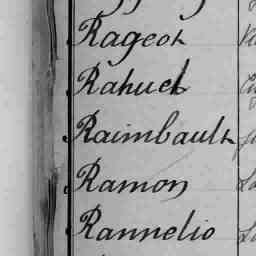 Rageot
Rahuel
Raimbault
Ramon
Rannelio